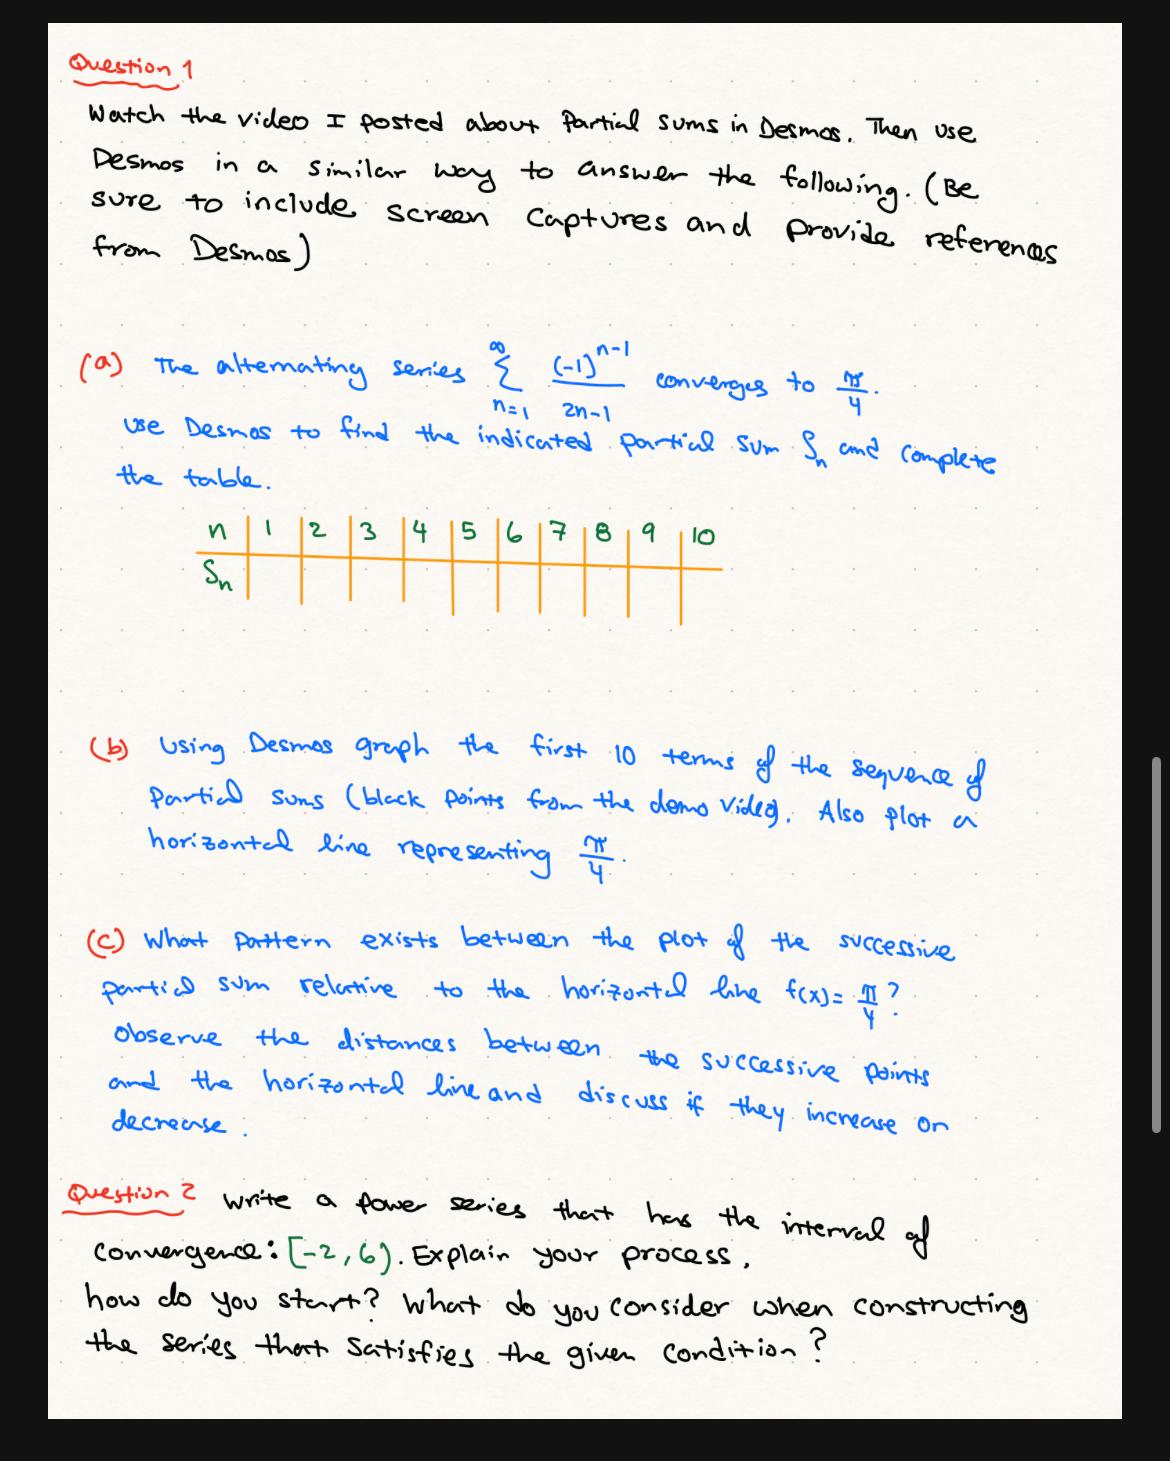 Question 1
Watch the video I posted about Partial sums in Desmos. Then use
Desmos in a similar way to answer the following. (Be
sure to include screen captures and provide references
from Desmos)
(a) The alternating series ∞ Σ n=1 (-1)^{n-1} / 2n-1 converges to π/4.
Use Desmos to find the indicated partial sum Sn and complete
the table.
n 1 2 3 4 5 6 7 8 9 10
Sn
(b) Using Desmos graph the first 10 terms of the sequence of
partial sums (black points from the demo video). Also plot a
horizontal line representing π/4.
(c) What pattern exists between the plot of the successive
partial sum relative to the horizontal line f(x)= π/4?
Observe the distances between the successive points
and the horizontal line and discuss if they increase or
decrease.
Question 2 Write a power series that has the interval of
convergence: [-2,6). Explain your process.
how do you start? What do you consider when constructing
the series that satisfies the given condition?